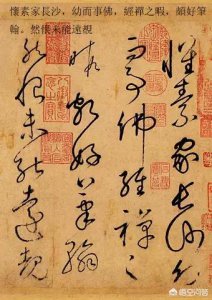 懷素家長沙，幼而事佛，經禪之暇，頗好筆
翰。然恨未能遠覩
懷素家長沙幼
而事佛經禪之
暇頗好筆翰
然恨未能遠覩
悟空问答